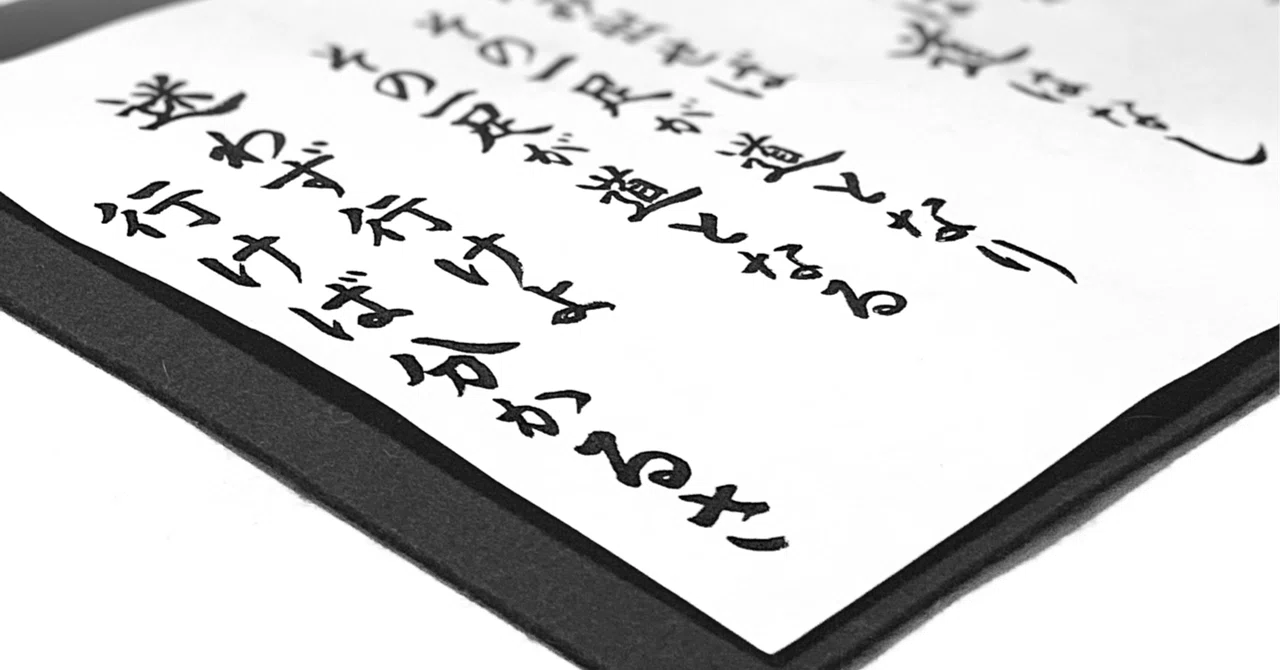 道はなし
出せば
その一足が道となり
その一足が道となる
迷わず行けよ
行けば分かるさ